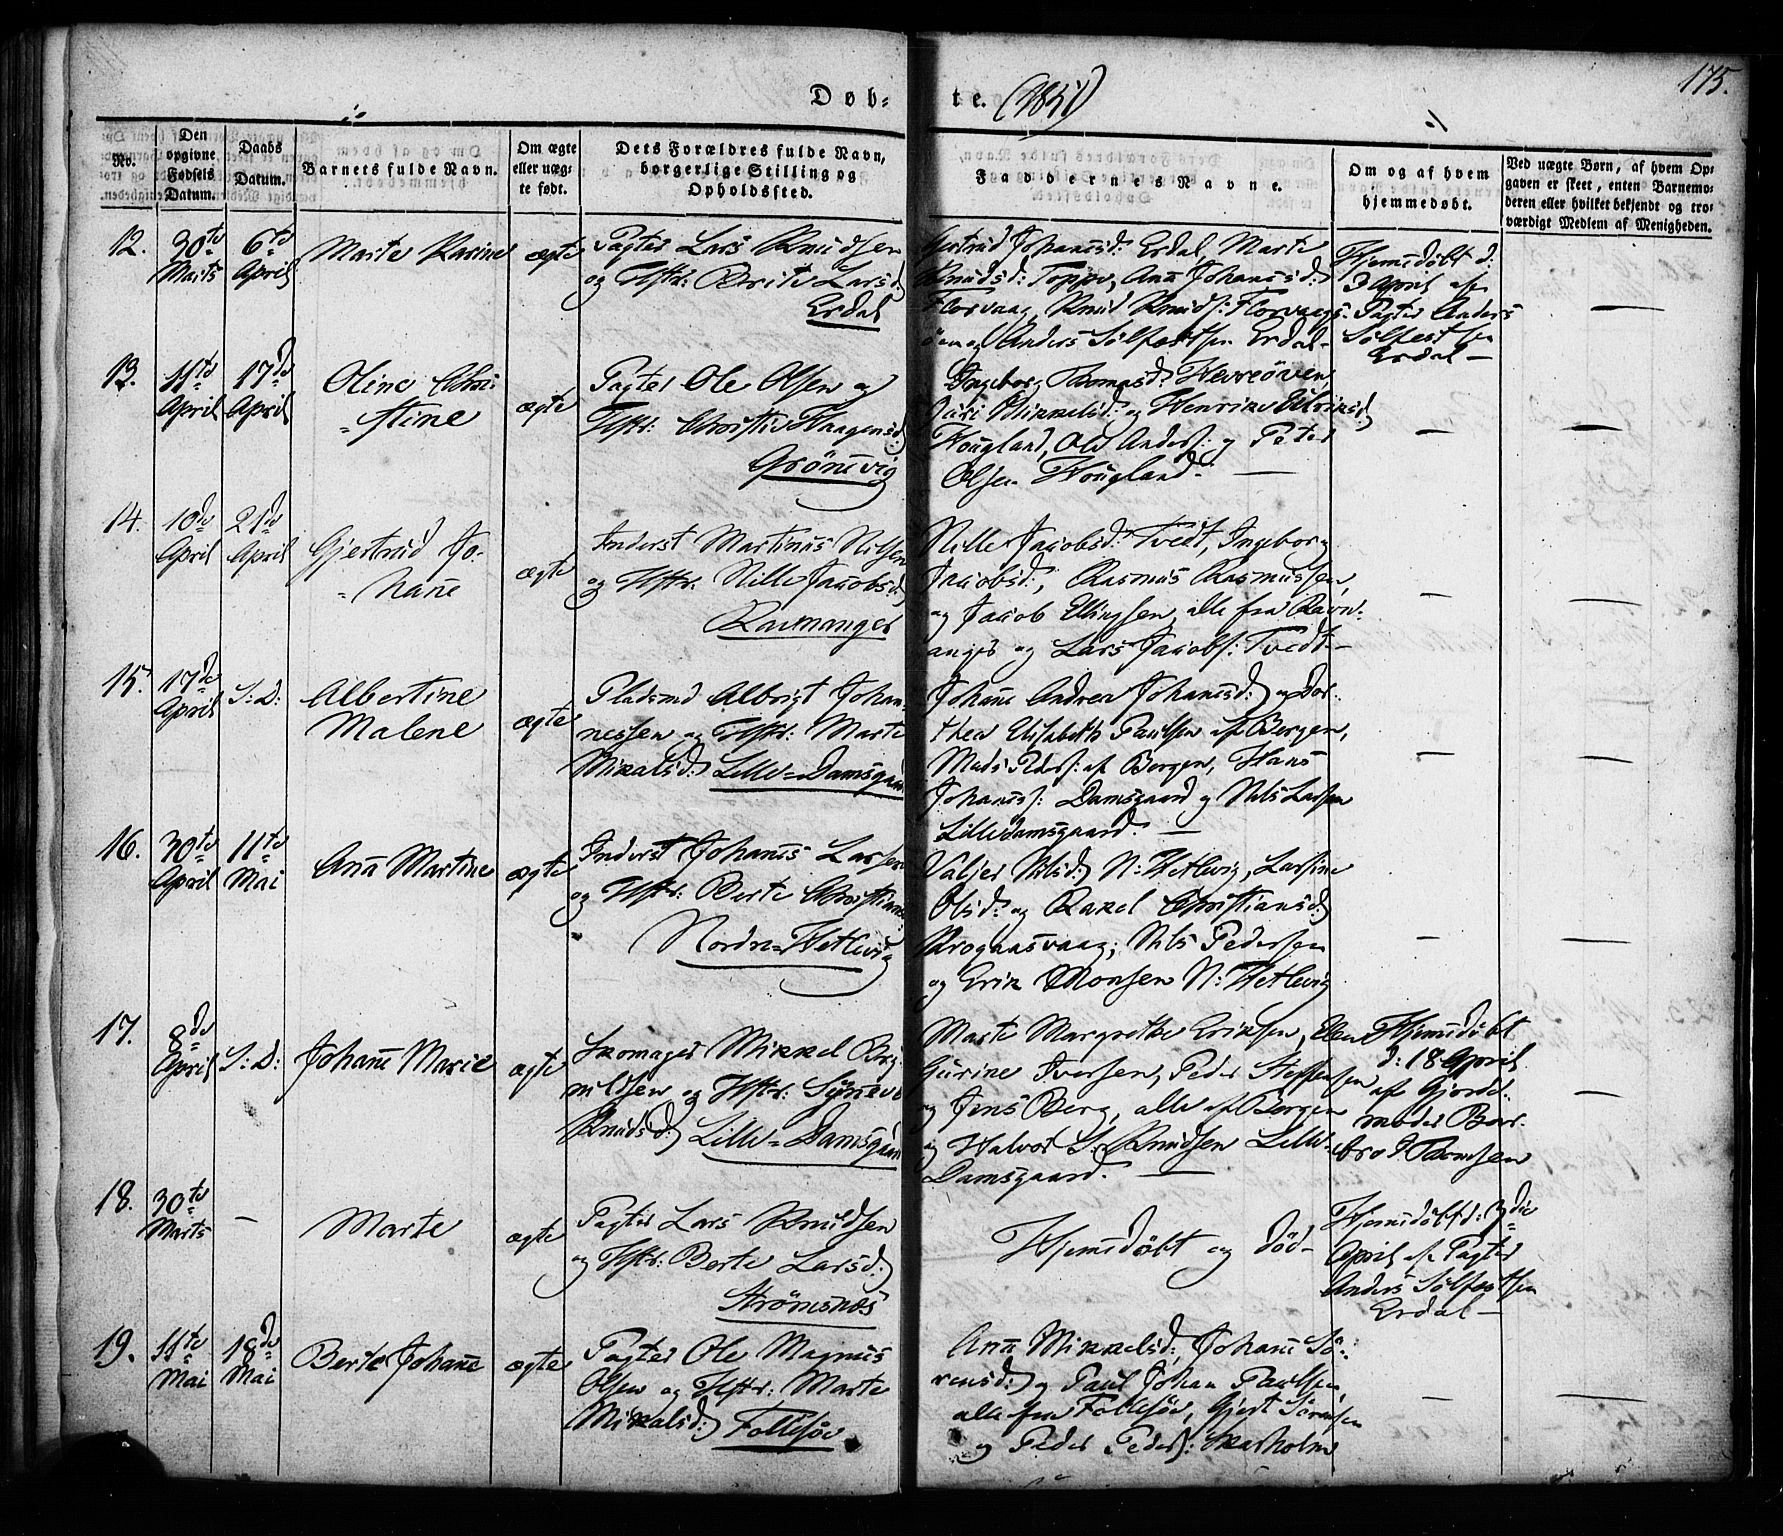 175.
Døb-te. (1851)
No.
Den opgivne Fødsels Datum.
Daabs Datum.
Barnets fulde Navn.
Om ægte eller uægte født.
Dets Forældres fulde Navn, borgerlige Stilling og Opholdssted.
Faddernes Navne.
Om og af hvem hjemmedøbt.
Ved uægte Børn, af hvem Opgaven er skeet, enten Barnemoderen eller hvilket bekjendt og troværdigt Medlem af Menigheden.
12.
30te Marts
6te April
Marte Karine
ægte
Pagter Lars Knudsen
og Hstr: Brite Larsd:
Erdal
Gjertrud Johannesd: Erdal, Marte
Knudsd: Toppe, Anna Johannsd:
Florvaag, Knud Knuds: Florvaags-
öen og Anders Sölfestsen Erdal-
Hjemdöbt d:
3 April af
Pagter Anders
Sölfestsen
Erdal -
13.
11te April
17de April
Oline Chri-
=stine
ægte
Pagter Ole Olsen og
Hstr: Christie Haagensd:
Grönevig
Ingebor Thomasd: Hevreöen,
Guri Mikkelsd: og Henrike Ulriksd:
Hougland, Ole Anders: og Peter
Olsen Hougland -
14.
10de April
21de April
Gjertrud Jo-
=hanne
ægte
Inderst Martinus Nilsen
og Hstr: Nille Jacobsd:
Ravnanger
Nille Jacobsd: Tvedt, Ingeborg
Jacobsd:, Rasmus Rasmussen,
og Jacob Ellingsen, alle fra Ravn-
anger og Lars Jacobs: Tvedt -
15.
17de April
S: D:
Albertine
Malene
ægte
Pladsmd Albrigt Johan-
nessen og Hstr: Marte
Mikalsd: Lille=Damsgaard
Johanne Andrea Johannesd: og Dor-
thea Elisabeth Paulsen af Bergen,
Mads Peders: af Bergen, Hans
Johanness: Damsgaard og Nils Larsen
Lilledamsgaard. -
16.
30te April
11te Mai
Anna Martine
ægte
Inderst Johannes Larsen
og Hstr: Berte Christians
Nordre=Hetlevig
Valjer Nilsd: N: Hetlevig, Larsine
Olsd: og Rakel Christiansd:
Krogaasvaag, Nils Pedersen
og Erik Monsen N: Hetlevig
17.
8de April
S: D:
Johanne Marie
ægte
Skomager Mikkel
og Hstr: Synneve
Knudsd: Lille=Damsgaard
Marte Margrethe Eriksen, Elen
Gurine Iversen, Peder Steffensen
og Jens Berg, alle af Bergen
og Halvor S. Knudsen Lille-
Damsgaard. -
Hjemdöbt
d: 18 April
af Gjord-
moder Bar-
bro
18.
30te Marts
-
Marte
ægte
Pagter Lars Knudsen
og Hstr: Berte Larsd:
Strömsnæs
Hjemdöbt og död -
Hjemdöbt d: 3die
April af Pagter
Anders Sölfestsen
Erdal -
19.
11te Mai
18de Mai
Berte Johanne
ægte
Pagter Ole Magnus
Olsen og Hstr: Marte
Mikalsd: Follesöe
Anna Mikkelsd:, Johanne Sö-
rensd: og Paul Johan Paulsen,
alle fra Follesöe, Gjert Sörensen
og Peder Peders: Skarholm